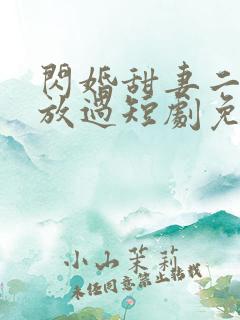 閃婚甜妻二
放過短劇免
小山茉莉
未经同意禁止转载